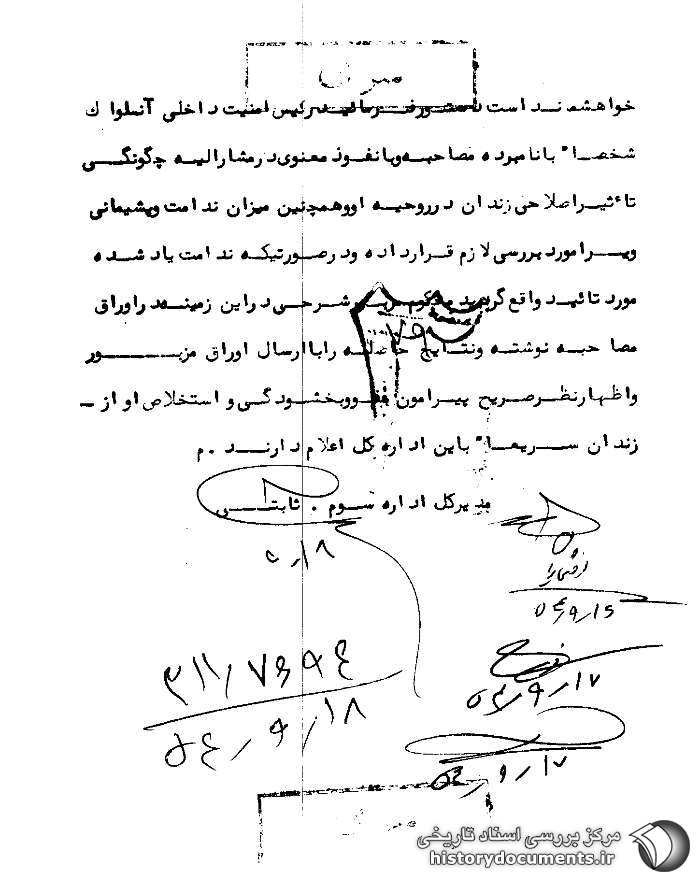 سری
خواهشمند است دستور فرمائید رئیس امنیت داخلی آنساواک
شخصا" بانامبرده مصاحبه وبانفوذ معنوی درمشارالیه چگونگی
تاثیراصلاحی زندان درروحیه اووهمچنین میزان ندامت وپشیمانی
ویرامورد بررسی لازم قرارداده ودرصورتیکه ندامت یادشده
مورد تائید واقع گردید شرحی دراین زمینه دراوراق
مصاحبه نوشته ونتایج حاصله راباارسال اوراق مزبور
واظهارنظرصریح پیرامون عفووبخشودگی و استخلاص او از ـ
زندان سریعا" باین اداره کل اعلام دارند. م
مدیرکل اداره سوم . ثابتی
۹/۱۸
۵۴/۹/۱۵
۳۱۱/۷۶۹۴
۵۴/۹/۱۸
۵۴/۹/۱۷
۵۴/۹/۱۷
سری
مرکز بررسی اسناد تاریخی
historydocuments.ir